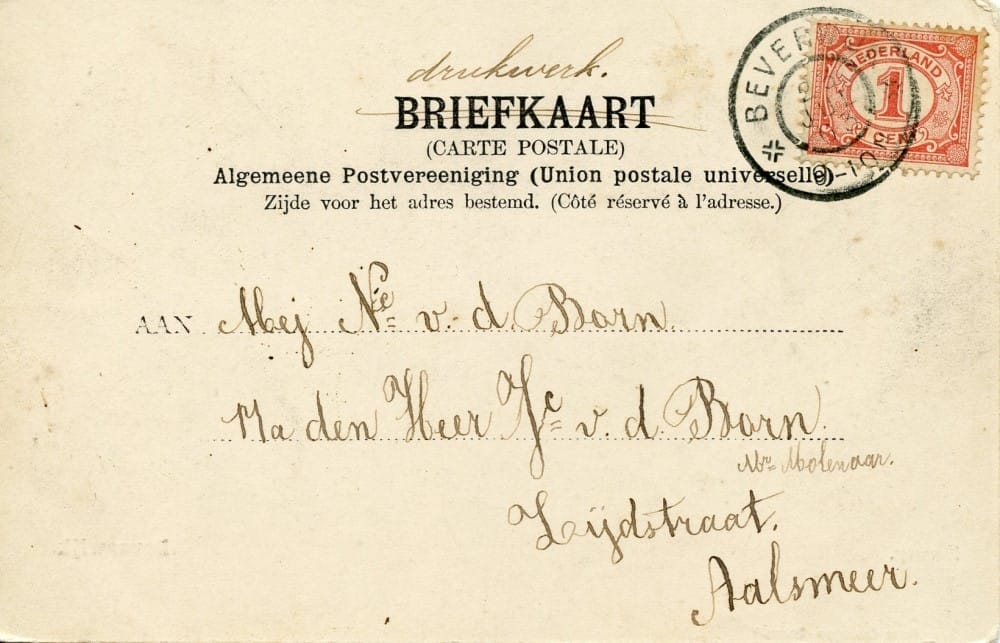 drukwerk.
BRIEFKAART
(CARTE POSTALE)
Algemeene Postvereeniging (Union postale universelle)
Zijde voor het adres bestemd. (Côté réservé à l'adresse.)
NEDERLAND
1
CENT
BEVER
9-10
AAN Mej Nie v. d. Born.
p/a den Heer Jc v. d. Born.
Mr Molenaar.
Zijdstraat.
Aalsmeer.